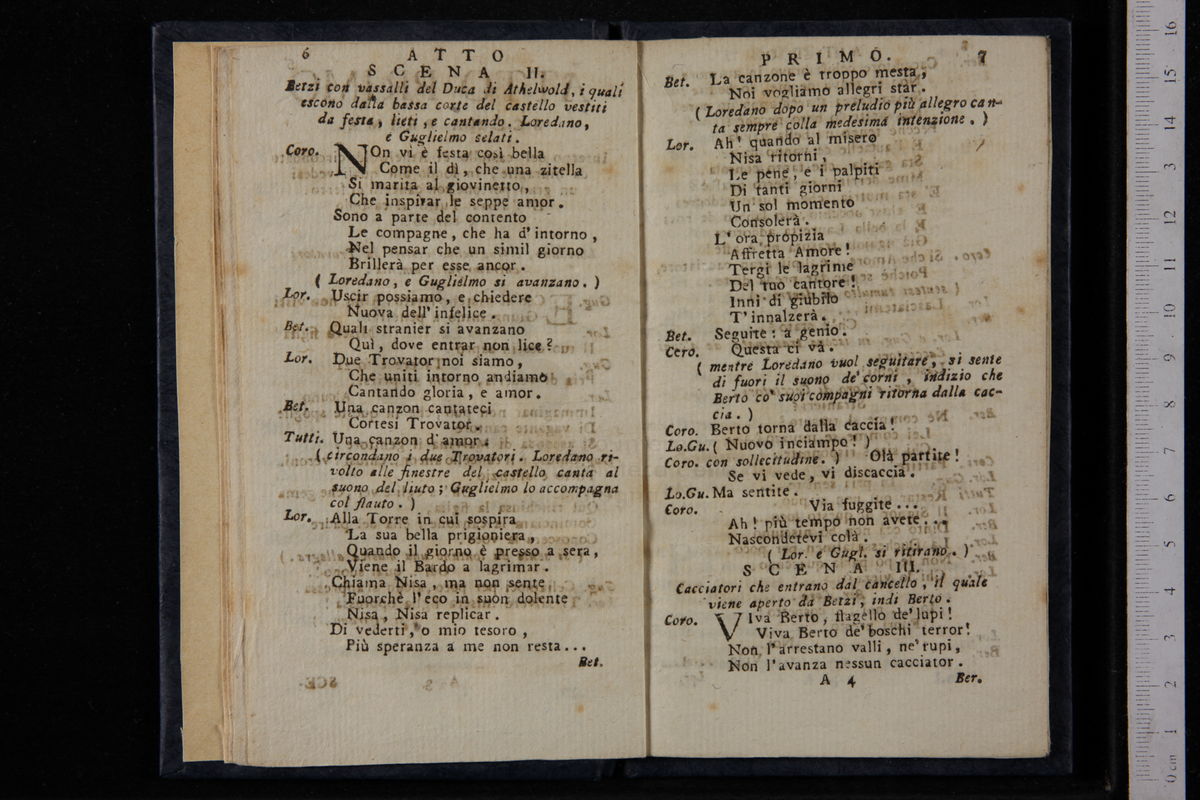 6 ATTO
SCENA II.
Betzi con vassalli del Duca di Athelwold, i quali
escono dalla bassa corte del castello vestiti
da festa, lieti, e cantando. Loredano,
e Guglielmo selati.
Coro. NOn vi è festa così bella
Come il dì, che una zitella
Si marita al giovinetto,
Che inspirar le seppe amor.
Sono a parte del contento
Le compagne, che ha d'intorno,
Nel pensar che un simil giorno
Brillerà per esse ancor.
( Loredano, e Guglielmo si avanzano. )
Lor. Uscir possiamo, e chiedere
Nuova dell'infelice.
Bet. Quali stranier si avanzano
Quì, dove entrar non lice?
Lor. Due Trovator noi siamo,
Che uniti intorno andiamo
Cantando gloria, e amor.
Bet. Una canzon cantateci
Cortesi Trovator.
Tutti. Una canzon d'amor.
( circondano i due Trovatori. Loredano ri-
volto alle finestre del castello canta al
suono del liuto; Guglielmo lo accompagna
col flauto. )
Lor. Alla Torre in cui sospira
La sua bella prigioniera,
Quando il giorno è presso a sera,
Viene il Bardo a lagrimar.
Chiama Nisa, ma non sente
Fuorchè l'eco in suon dolente
Nisa, Nisa replicar.
Di vederti, o mio tesoro,
Più speranza a me non resta...
Bet.
PRIMO. 7
Bet. La canzone è troppo mesta,
Noi vogliamo allegri star.
( Loredano dopo un preludio più allegro can-
ta sempre colla medesima intenzione. )
Lor. Ah' quando al misero
Nisa ritorni,
Le pene, e i palpiti
Di tanti giorni
Un sol momento
Consolerà.
L' ora propizia
Affretta Amore!
Tergi le lagrime
Del tuo cantore!
Inni di giubilo
T'innalzerà.
Bet. Seguite: a genio.
Coro. Questa ci và.
( mentre Loredano vuol seguitare, si sente
di fuori il suono de' corni, indizio che
Berto co' suoi compagni ritorna dalla cac-
cia. )
Coro. Berto torna dalla caccia!
Lo.Gu. ( Nuovo inciampo! )
Coro. con sollecitudine. ) Olà partite!
Se vi vede, vi discaccia.
Lo.Gu. Ma sentite.
Coro. Via fuggite...
Ah! più tempo non avete...
Nascondetevi colà.
( Lor. e Gugl. si ritirano. )
SCENA III.
Cacciatori che entrano dal cancello, il quale
viene aperto da Betzi, indi Berto.
Coro. VIva Berto, flagello de' lupi!
Viva Berto de' boschi terror!
Non l'arrestano valli, ne' rupi,
Non l'avanza nessun cacciator.
A 4 Ber.